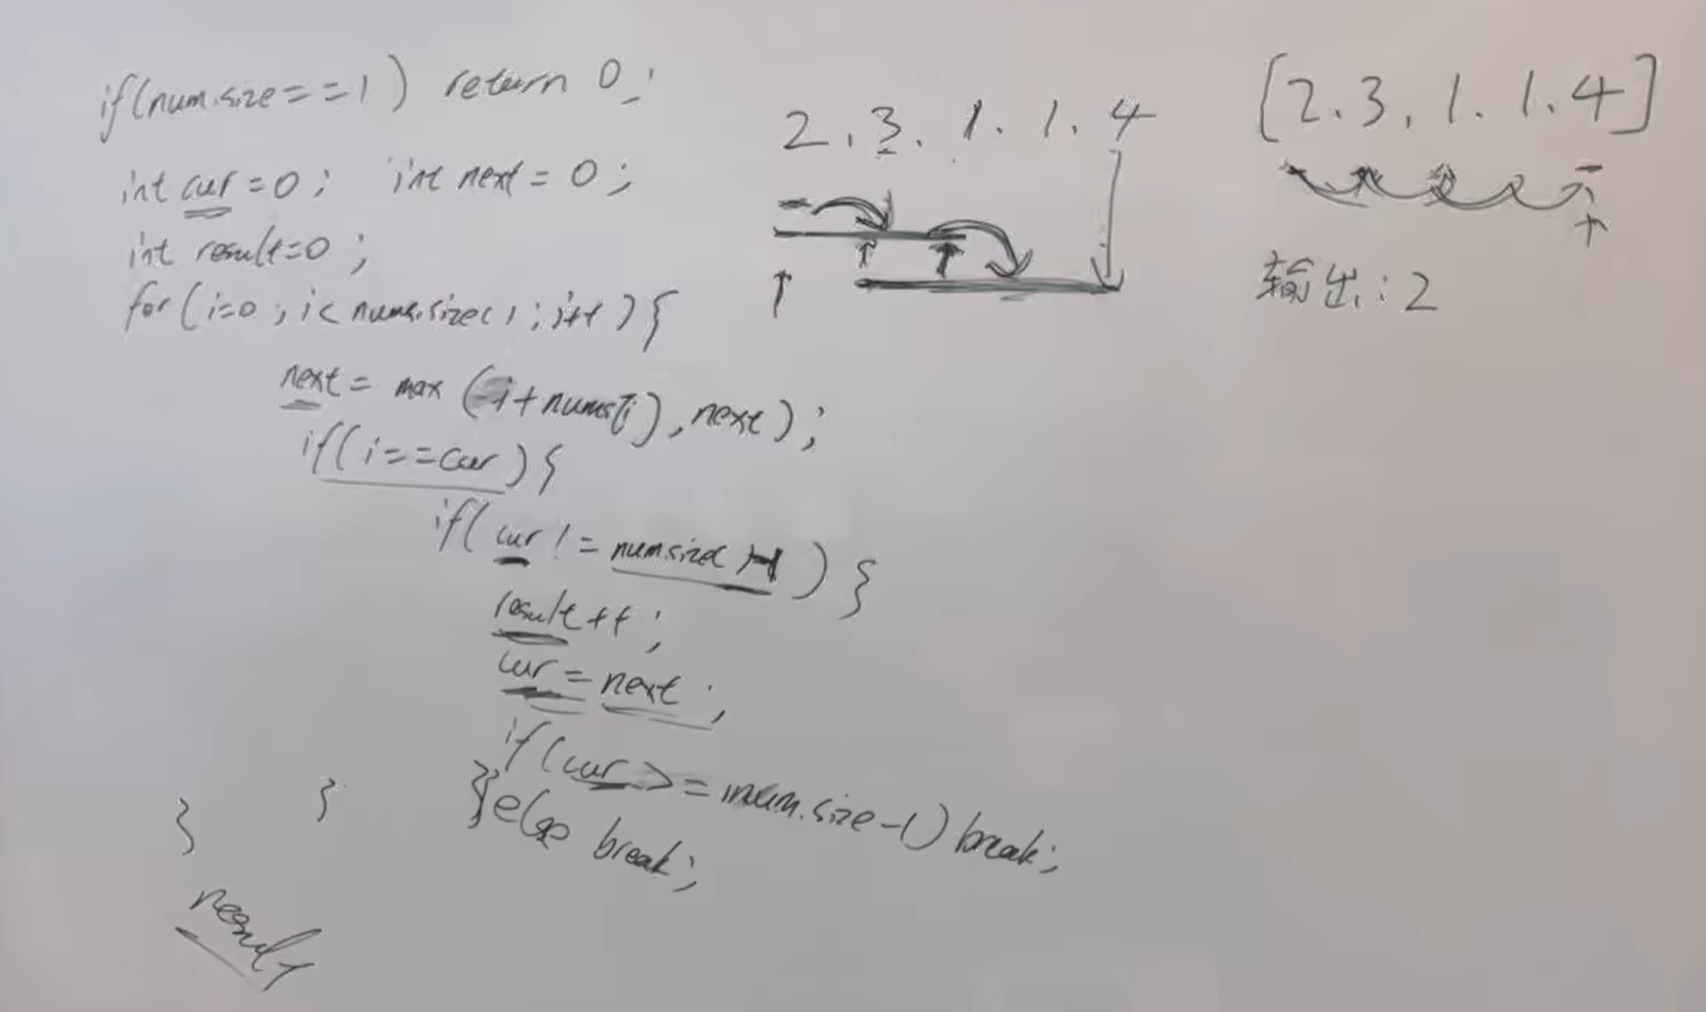 if(num.size==1) return 0;
int cur=0; int next=0;
int result=0;
for(i=0;i<nums.size();i++){
next=max(i+nums[i],next);
if(i==cur){
if(cur!=numsize-1){
result++;
cur=next;
if(cur>=num.size-1)break;
}else break;
}
}
result
2,3,1,1,4
[2,3,1,1,4]
输出:2